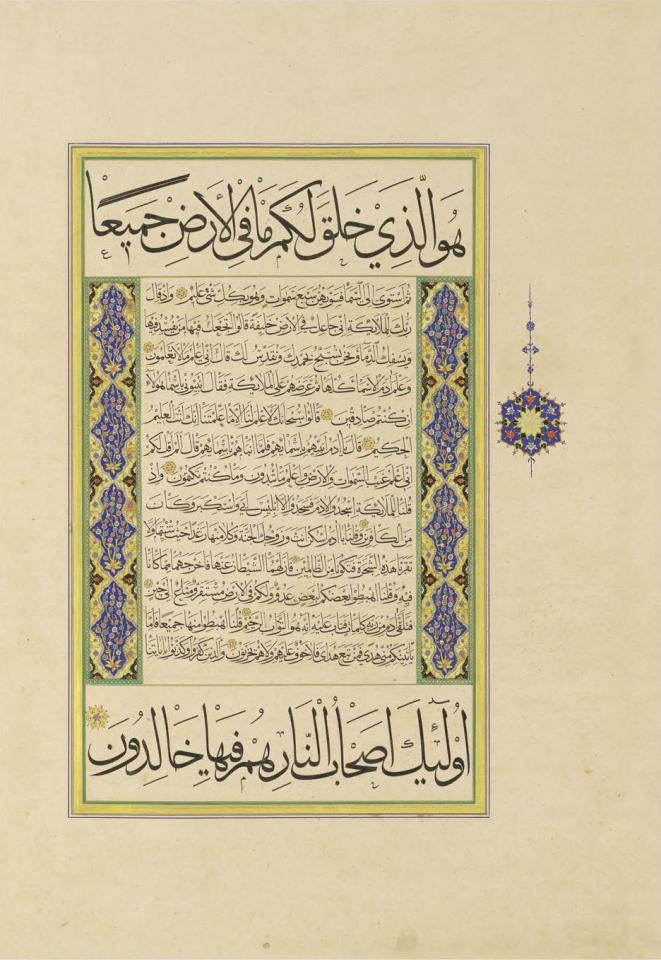 هُوَ الَّذِي خَلَقَ لَكُم مَا فِي الْأَرْضِ جَمِيعًا
ثم استوى الى السماء فسويهن سبع سموات وهو بكل شيء عليم واذ قال
ربك للملائكة اني جاعل في الارض خليفة قالوا اتجعل فيها من يفسد فيها
ويسفك الدماء ونحن نسبح بحمدك ونقدس لك قال اني اعلم ما لا تعلمون
وعلم ادم الاسماء كلها ثم عرضهم على الملائكة فقال انبئوني باسماء هؤلاء
ان كنتم صادقين قالوا سبحانك لا علم لنا الا ما علمتنا انك انت العليم
الحكيم قال يا ادم انبئهم باسمائهم فلما انباهم باسمائهم قال الم اقل لكم
اني اعلم غيب السموات والارض واعلم ما تبدون وما كنتم تكتمون واذ
قلنا للملائكة اسجدوا لادم فسجدوا الا ابليس ابى واستكبر وكان
من الكافرين وقلنا يا ادم اسكن انت وزوجك الجنة وكلا منها رغدا حيث شئتما ولا
تقربا هذه الشجرة فتكونا من الظالمين فازلهما الشيطان عنها فاخرجهما مما كانا
فيه وقلنا اهبطوا بعضكم لبعض عدو ولكم في الارض مستقر ومتاع الى حين
فتلقى ادم من ربه كلمات فتاب عليه انه هو التواب الرحيم قلنا اهبطوا منها جميعا فاما
ياتينكم مني هدى فمن تبع هداي فلا خوف عليهم ولا هم يحزنون والذين كفروا وكذبوا باياتنا
اُولٰئِكَ اَصْحَابُ النَّارِ هُمْ فِيهَا خَالِدُونَ